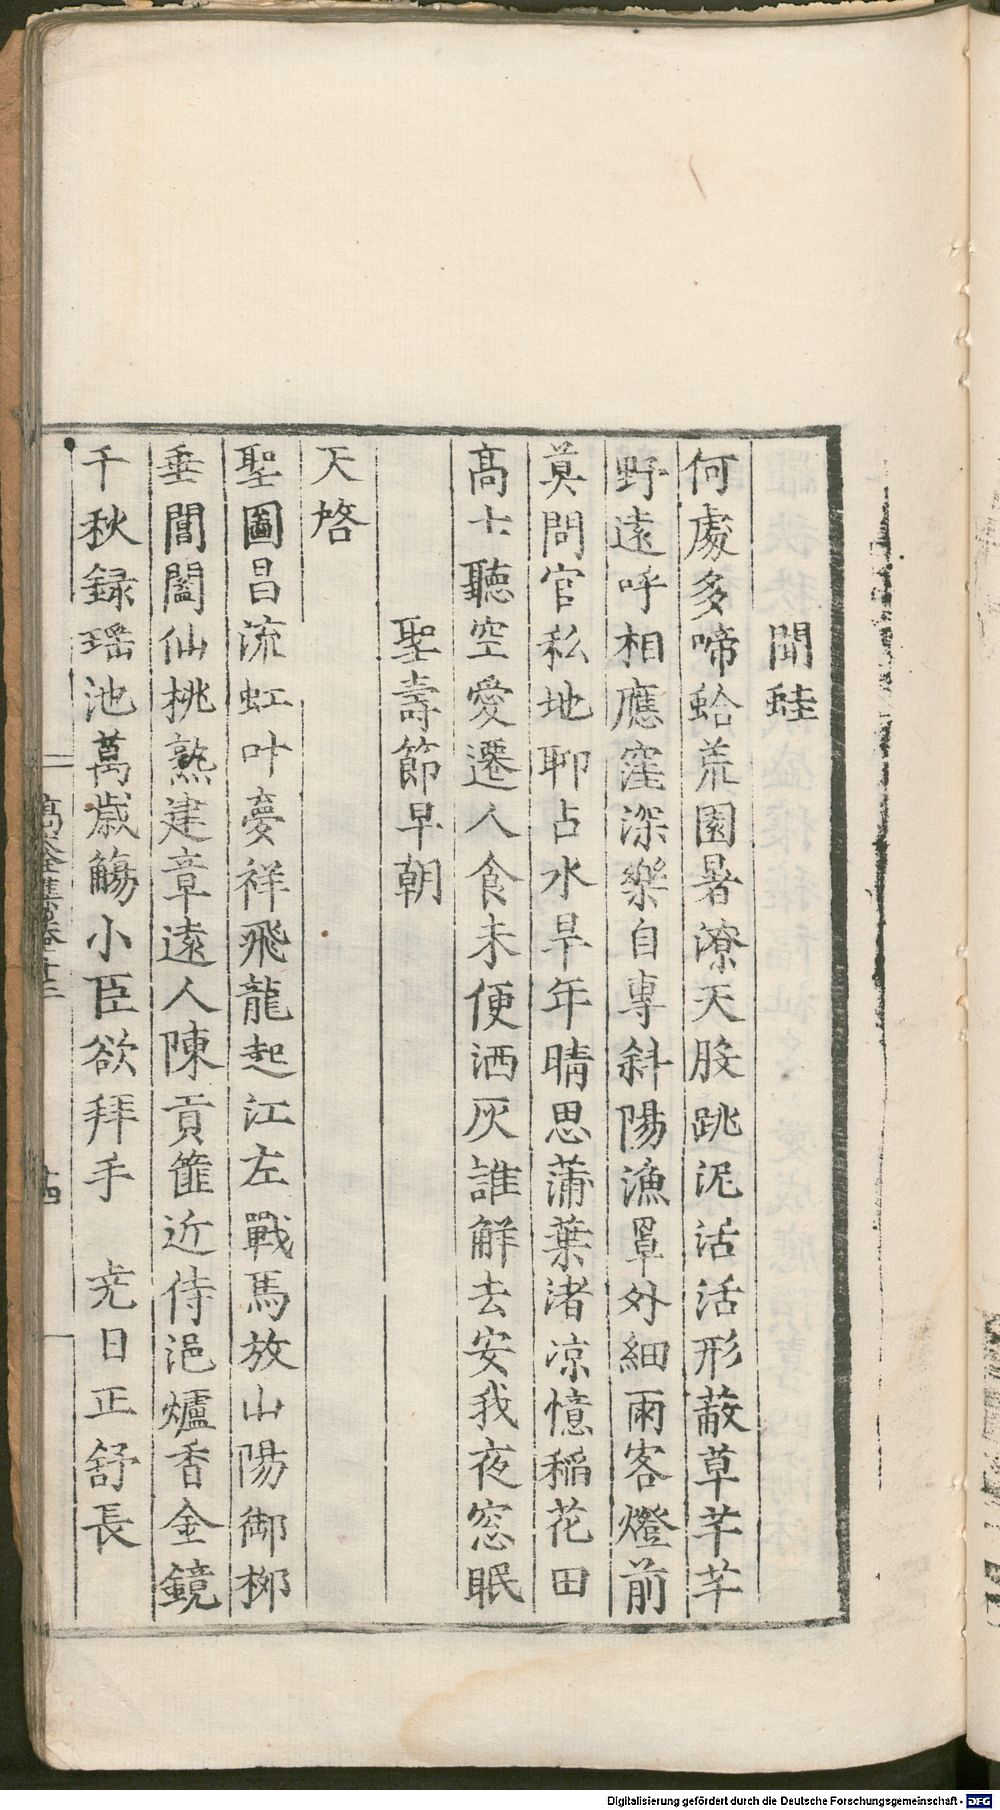 聞蛙
何處多啼蛤荒園暑潦天股跳泥活活形蔽草芊芊
野遠呼相應窪深樂自專斜陽漁罩外細雨客燈前
莫問官私地聊占水旱年晴思蒲葉渚凉憶稲花田
髙士聽空愛遷人食未便洒灰誰觧去安我夜窓眠
聖壽節早朝
天啓
聖圖昌流虹叶夢祥飛龍起江左戰馬放山陽御栁
垂閶闔仙桃熟建章遠人陳貢篚近侍浥爐香金鏡
千秋録瑶池萬歳觴小臣欲拜手 尭日正舒長
髙太史大全集卷十三
十四
Digitalisierung gefördert durch die Deutsche Forschungsgemeinschaft - DFG